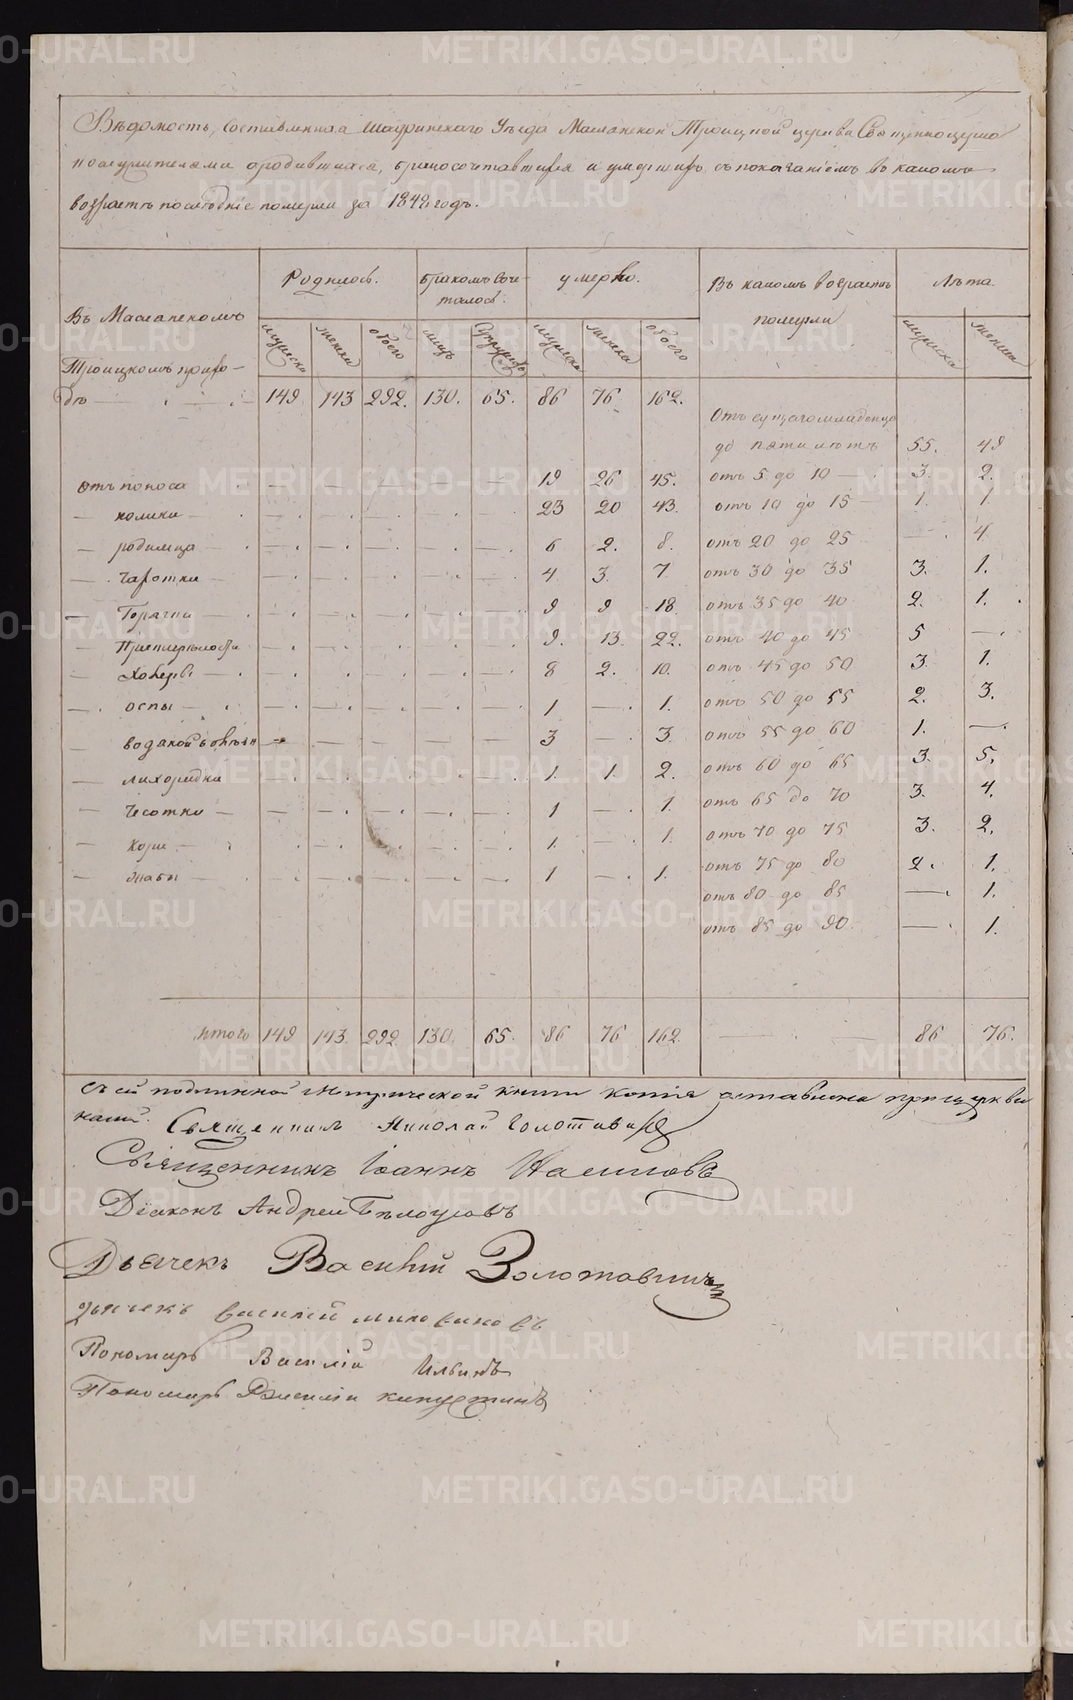 Вѣдомость, составленная Шадринскаго Уѣзда Маслянской Троицкой церкви Священноцерко
вослужителями о родившихся, бракосочетавшихся и умершихъ, съ показаніемъ въ какомъ
возрастѣ послѣдніе померли за 1842 годъ.
Въ Маслянскомъ Родилось. Бракомъ соче- умерло. Въ какомъ возрастѣ Лѣта
талось. померли
мужеска женска обоего лицъ супружес. мужеска женска обоего мужеска женска
Троицкомъ прихо-
дѣ 149 143 292. 130. 65. 86 76 162.
Отъ сущаго младенца
до пяти лѣтъ 55. 48
Отъ поноса 19 26 45. отъ 5 до 10 3. 2.
— колики 23 20 43. отъ 10 до 15 1. 1
— родимца 6 2. 8. отъ 20 до 25 — 4.
— чахотки 4 3. 7 отъ 30 до 35 3. 1.
— Горячки 9 9 18 отъ 35 до 40 2. 1.
— Престарѣлости 9. 13. 22. отъ 40 до 45 5 —
— 8 2. 10. отъ 45 до 50 3. 1.
— оспы 1 — 1. отъ 50 до 55 2. 3.
— водяной болѣзн 3 — 3. отъ 55 до 60 1. —
— лихорадки 1. 1. 2. отъ 60 до 65 3. 5.
— Чесотки 1 — 1. отъ 65 до 70 3. 4.
— Кори 1. — 1. отъ 70 до 75 3. 2.
— жабы 1 — 1. отъ 75 до 80 2. 1.
отъ 80 до 85 — 1.
отъ 85 до 90. — 1.
Итого 149 143. 292 130. 65. 86 76 162. 86 76.
Съ сей подлинной Метрической книги Копія оставлена при церкви
нашей. Священникъ Николай
Священникъ Іоаннъ
Діаконъ Андрей Бѣлоусовъ
Дьячекъ Василій Золотавинъ
Дьячекъ Василій
Пономарь Василій Ильинъ
Пономарь Василій Капустинъ
METRIKI.GASO-URAL.RU